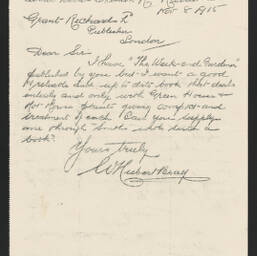 Nov 8 1915
Grant Richards L
Publisher
London
Dear Sir
I have "The Week-end Gardener"
published by you but I want a good
up to date book that deals
entirely and only with Green House &
Hot House plants giving
treatment of each Can you supply
one through Smiths who has such a
book?
Yours truly